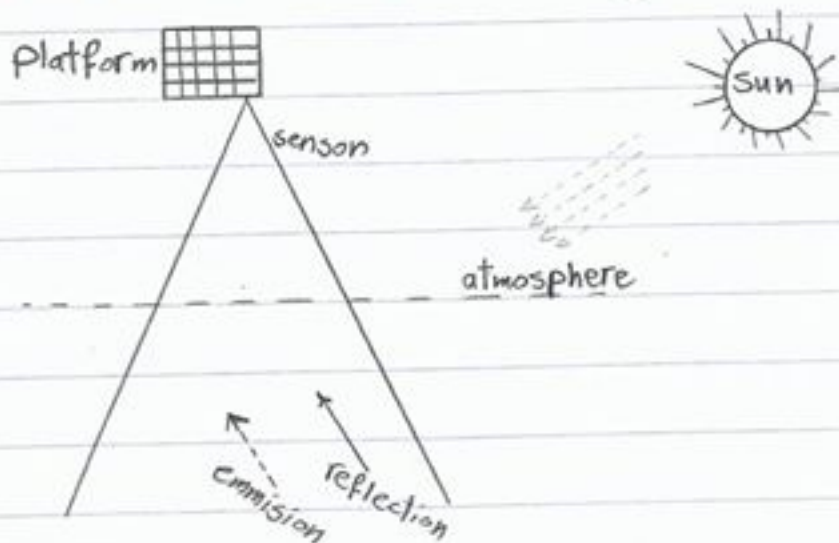 platform
sun
senson
atmosphere
emmision
reflection